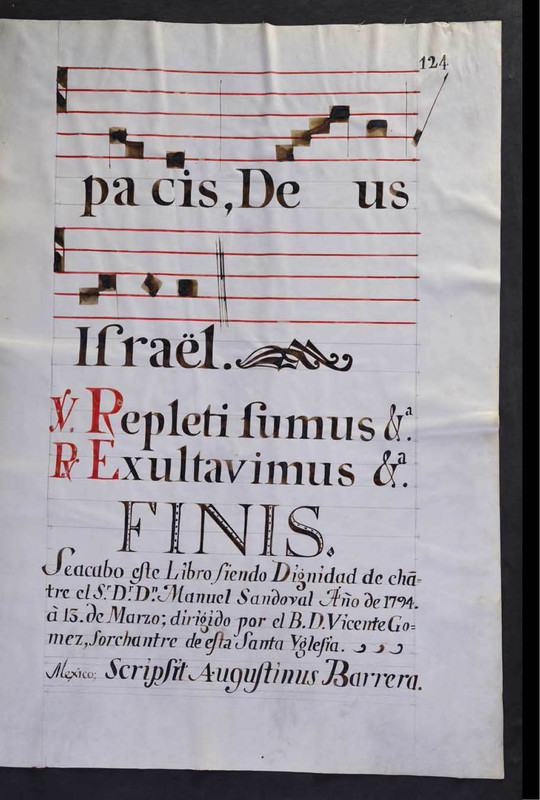 124
pa cis, De us
Iſraël.
℣. Repleti ſumus &ª.
℟ Exultavimus &ª.
FINIS.
Seacabo eſte Libro ſiendo Dignidad de chã=
tre el S.ʳ Dʳ. Dⁿ. Manuel Sandoval Año de 1794.
à 15. de Marzo; dirigido por el B. D. Vicente Go=
mez, Sorchantre de eſta Santa Ygleſia.
Mexico: Scripſit Auguſtinus Barrera.